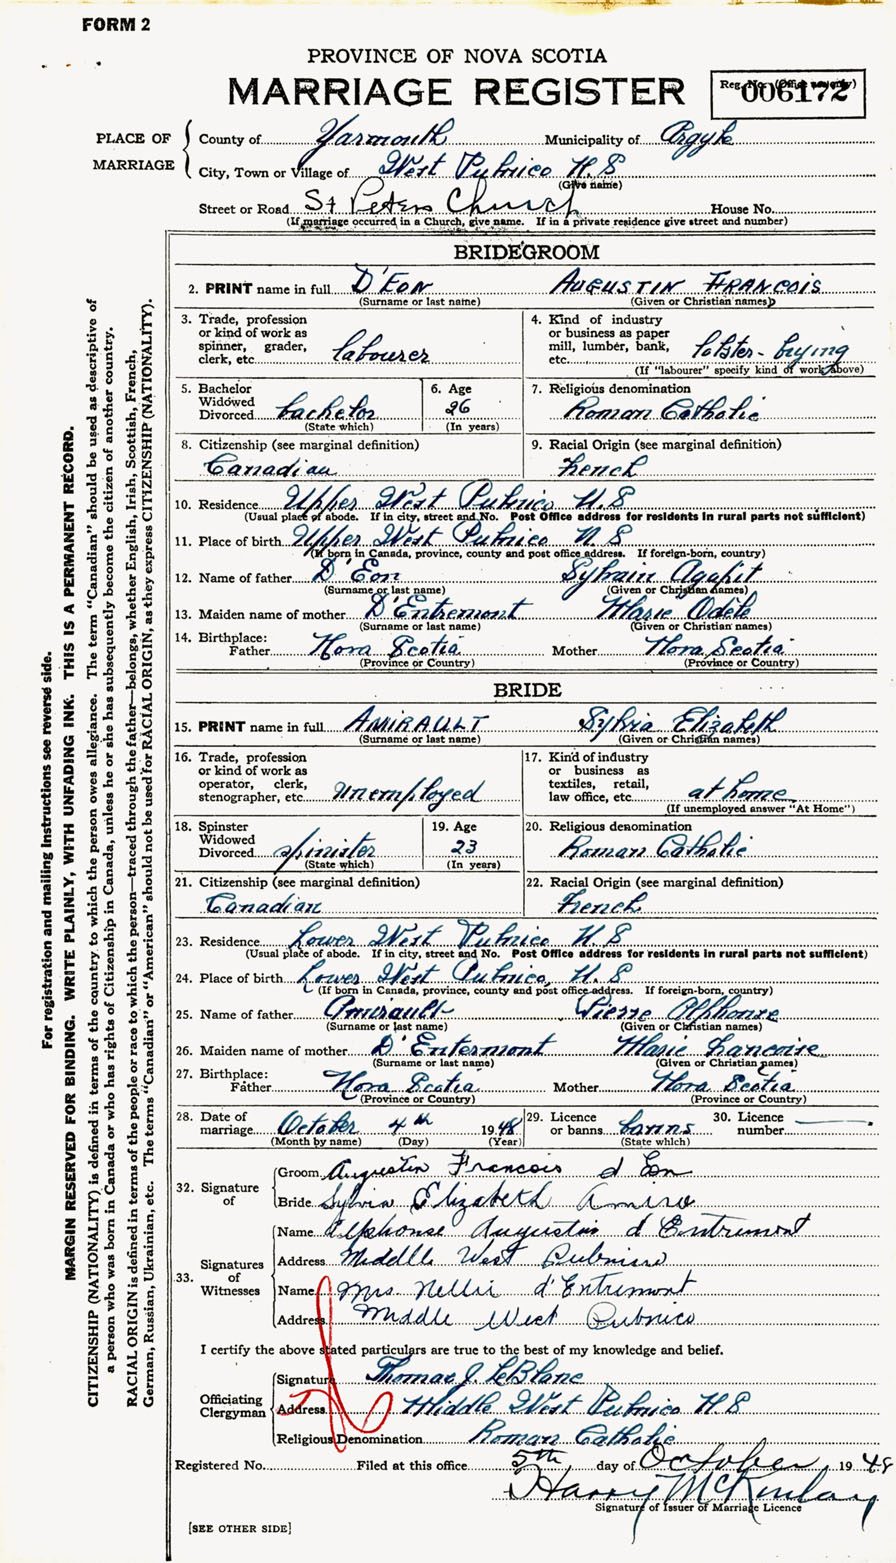 FORM 2
PROVINCE OF NOVA SCOTIA
MARRIAGE REGISTER
Reg. No. 006172
PLACE OF MARRIAGE
County of Yarmouth Municipality of Argyle
City, Town or Village of West Pubnico N.S
(Give name)
Street or Road St Peters Church House No.
(If marriage occurred in a Church, give name. If in a private residence give street and number)
BRIDEGROOM
2. PRINT name in full D'Eon Augustin Francois
(Surname or last name) (Given or Christian names)
3. Trade, profession or kind of work as spinner, grader, clerk, etc. labourer
4. Kind of industry or business as paper mill, lumber, bank, etc. lobster-buying
(If "labourer" specify kind of work above)
5. Bachelor Widowed Divorced bachelor
(State which)
6. Age 26
(In years)
7. Religious denomination
Roman Catholic
8. Citizenship (see marginal definition)
Canadian
9. Racial Origin (see marginal definition)
French
10. Residence Upper West Pubnico N.S
(Usual place of abode. If in city, street and No. Post Office address for residents in rural parts not sufficient)
11. Place of birth Upper West Pubnico N S
(If born in Canada, province, county and post office address. If foreign-born, country)
12. Name of father D'Eon Sylvain Agapit
(Surname or last name) (Given or Christian names)
13. Maiden name of mother D'Entremont Marie Odèle
(Surname or last name) (Given or Christian names)
14. Birthplace:
Father Nova Scotia Mother Nova Scotia
(Province or Country) (Province or Country)
BRIDE
15. PRINT name in full AMIRAULT Sylvia Elizabeth
(Surname or last name) (Given or Christian names)
16. Trade, profession or kind of work as operator, clerk, stenographer, etc. unemployed
17. Kind of industry or business as textiles, retail, law office, etc. at home
(If unemployed answer "At Home")
18. Spinster Widowed Divorced spinister
(State which)
19. Age 23
(In years)
20. Religious denomination
Roman Catholic
21. Citizenship (see marginal definition)
Canadian
22. Racial Origin (see marginal definition)
French
23. Residence Lower West Pubnico N.S
(Usual place of abode. If in city, street and No. Post Office address for residents in rural parts not sufficient)
24. Place of birth Lower West Pubnico, N.S
(If born in Canada, province, county and post office address. If foreign-born, country)
25. Name of father Amirault Pierre Alphonse
(Surname or last name) (Given or Christian names)
26. Maiden name of mother D'Entermont Marie Francoise
(Surname or last name) (Given or Christian names)
27. Birthplace:
Father Nova Scotia Mother Nova Scotia
(Province or Country) (Province or Country)
28. Date of marriage October 4th 1948
(Month by name) (Day) (Year)
29. Licence or banns banns
(State which)
30. Licence number
32. Signature of
Groom Augustin Francois d Eon
Bride Sylvia Elizabeth Amiro
33. Signatures of Witnesses
Name Alphonse Augustin d'Entremont
Address Middle West Pubnico
Name Mrs Nellie d'Entremont
Address Middle West Pubnico
I certify the above stated particulars are true to the best of my knowledge and belief.
Officiating Clergyman
Signature Thomas J. LeBlanc
Address Middle West Pubnico N.S
Religious Denomination Roman Catholic
Registered No. Filed at this office 5th day of October 1948
Harry McKinlay
Signature of Issuer of Marriage Licence
[SEE OTHER SIDE]
For registration and mailing instructions see reverse side.
MARGIN RESERVED FOR BINDING. WRITE PLAINLY, WITH UNFADING INK. THIS IS A PERMANENT RECORD.
CITIZENSHIP (NATIONALITY) is defined in terms of the country to which the person owes allegiance. The term "Canadian" should be used as descriptive of
a person who was born in Canada or who has rights of Citizenship in Canada, unless he or she has subsequently become the citizen of another country.
RACIAL ORIGIN is defined in terms of the people or race to which the person—traced through the father—belongs, whether English, Irish, Scottish, French,
German, Russian, Ukrainian, etc. The terms "Canadian" or "American" should not be used for RACIAL ORIGIN, as they express CITIZENSHIP (NATIONALITY).